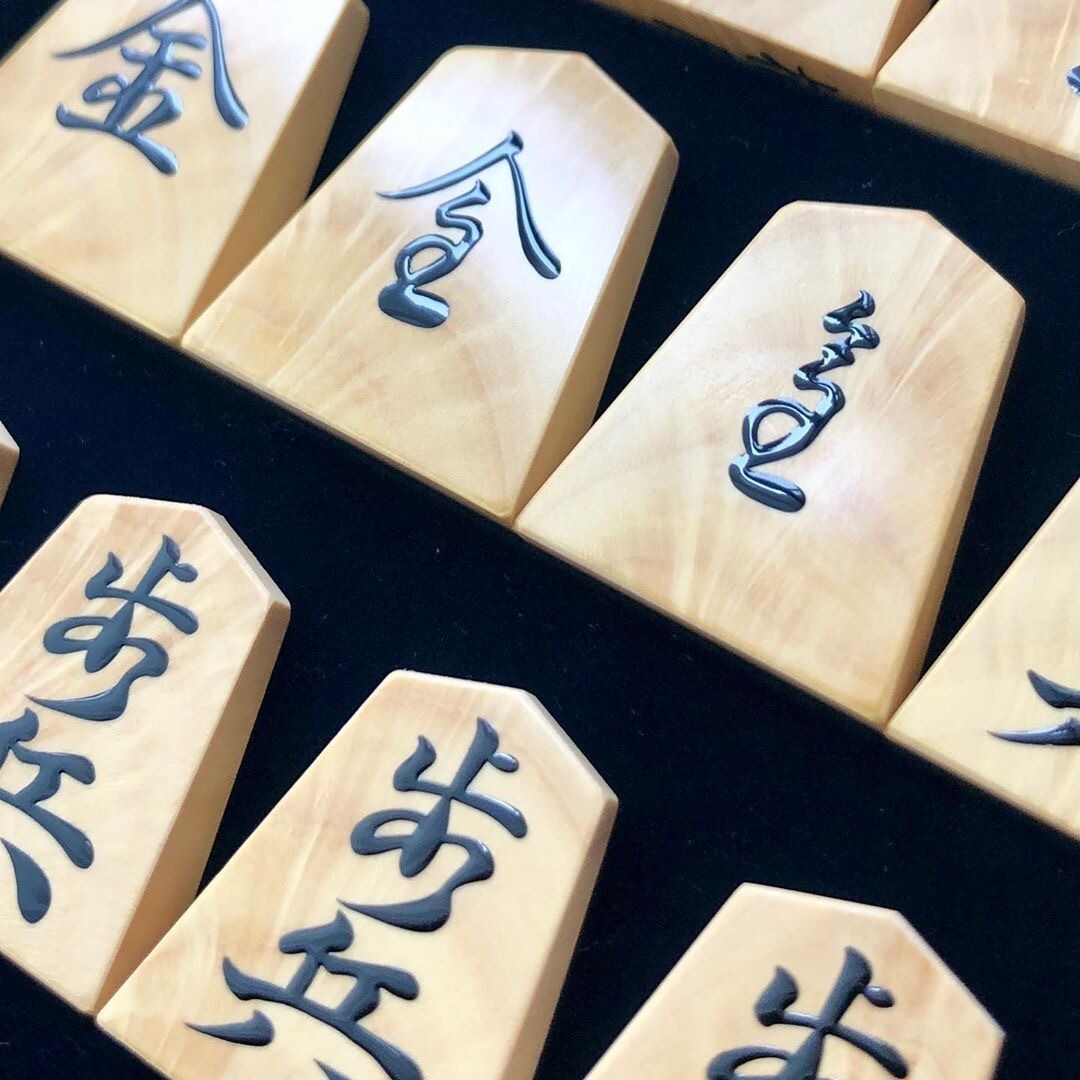 金
金
金
歩兵
歩兵
歩